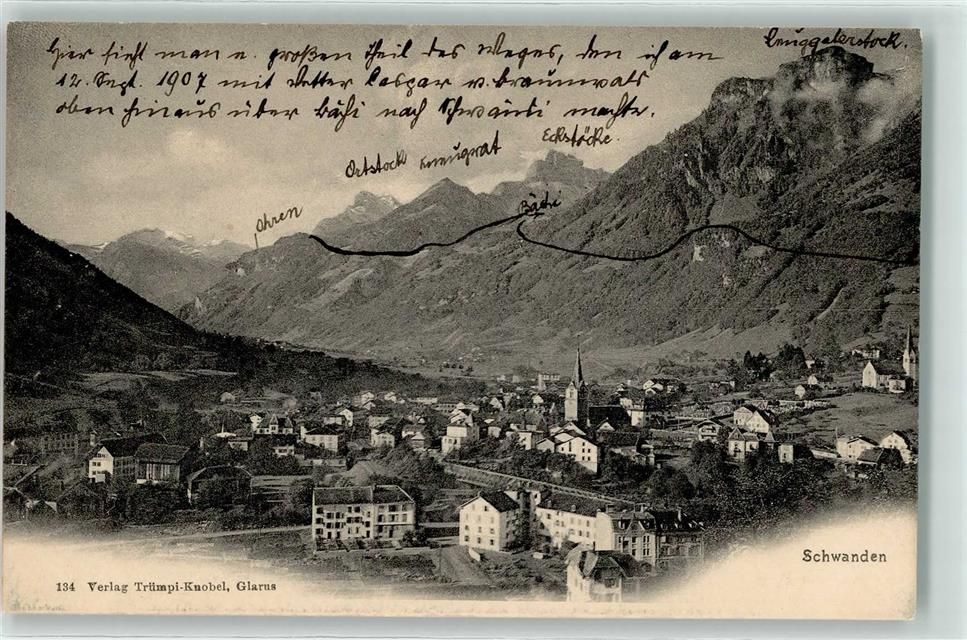 Hier sieht man e. großen Theil des Weges, den ich am
12. Sept. 1907 mit Vetter Caspar v. Braunwals
oben hinaus über Bächi nach Schwändi machte.
Leuggelstock.
Eckstöcke.
Ortstock Kneugrat
Bächi
Ohren
Schwanden
134 Verlag Trümpi-Knobel, Glarus